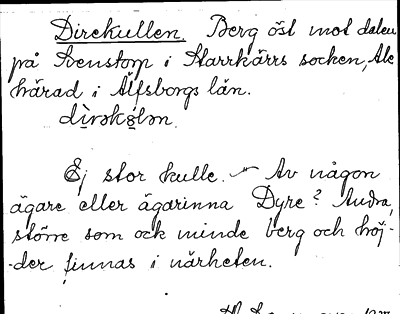 Direkullen. Berg öst mot dalen
på Svenstorp i Starrkärrs socken, Ale
härad i Älfsborgs län.
Ej stor kulle. — Av någon
ägare eller ägarinna Dyre? Andra,
större som ock minde berg och höj-
-der finnas i närheten.